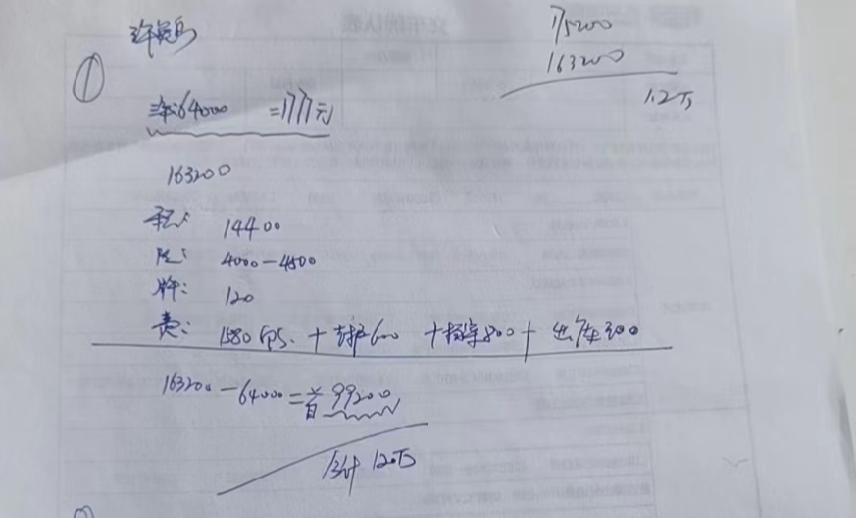 ①
175200
163200
1.2万
三年:64000 =1777元
163200
税: 14400
保: 4000-4500
牌: 120
费: 1580 GPS. + 封600 + 800 + 出库300
163200-64000=首99200
合计 12万